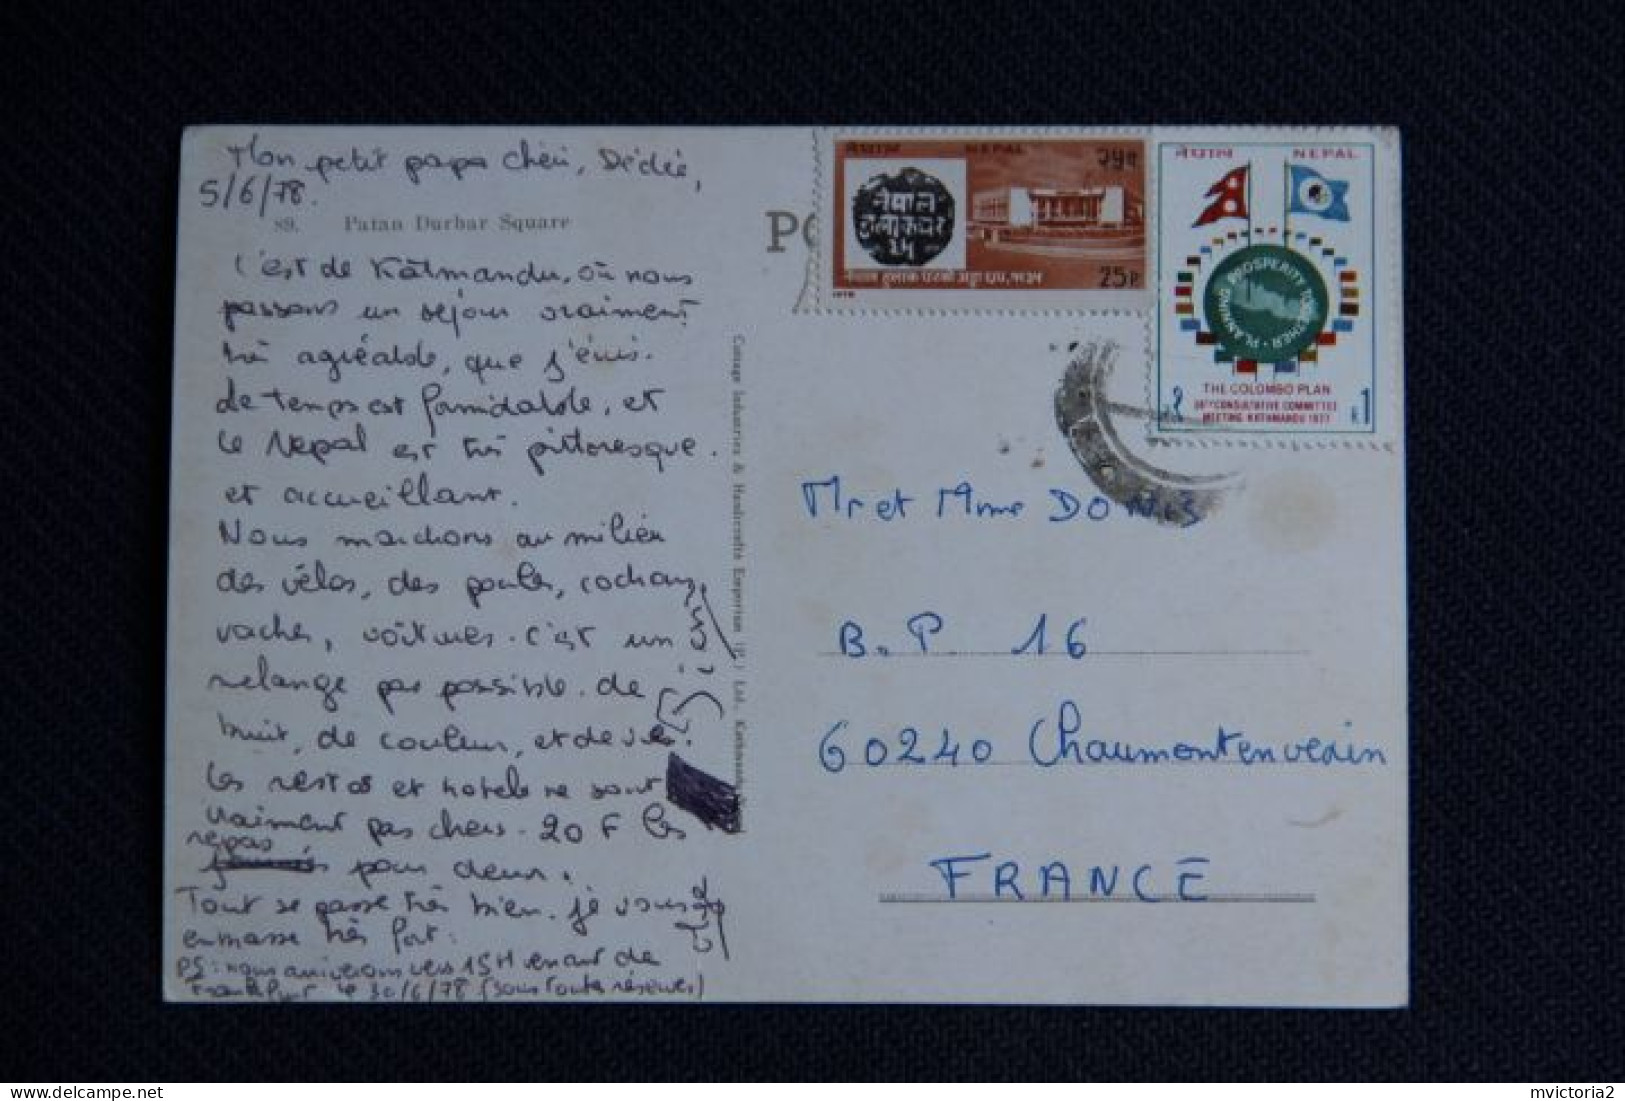 Mon petit papa chéri, Dédée,
5/6/78.
89. Patan Durbar Square
C'est de Katmandu, où nous
passons un séjour vraiment
très agréable, que j'écris.
Le temps est formidable, et
le Nepal est très pittoresque.
et accueillant.
Nous marchons au milieu
des vélos, des poules, cochons,
vaches, voitures. C'est un
mélange pas possible. de
bruit, de couleur, et de vie.
Les restos et hotels ne sont
vraiment pas chers. 20 F les
repas
pour deux.
Tout se passe très bien. je vous
embrasse très fort.
PS: nous arriverons vers 15H venant de
Frankfurt le 30/6/78 (sous toutes réserves)
Cottage Industries & Handicrafts Emporium (P.) Ltd. Kathmandu
नेपाल NEPAL २५प
नेपाल हुलाकघर
25P
1978
नेपाल NEPAL
PLANNING PROSPERITY TOGETHER
THE COLOMBO PLAN
26TH CONSULTATIVE COMMITTEE
MEETING, KATHMANDU 1977
R.1
Mr et Mme DONIS
B.P. 16
60240 Chaumontenvexin
FRANCE
delcampe.net
mvictoria2